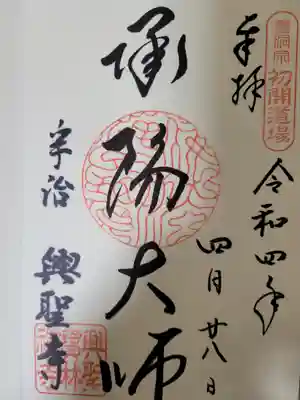 曹洞宗
初開道場
奉拝
令和四年
四月廿八日
承陽大師
宇治 興聖寺